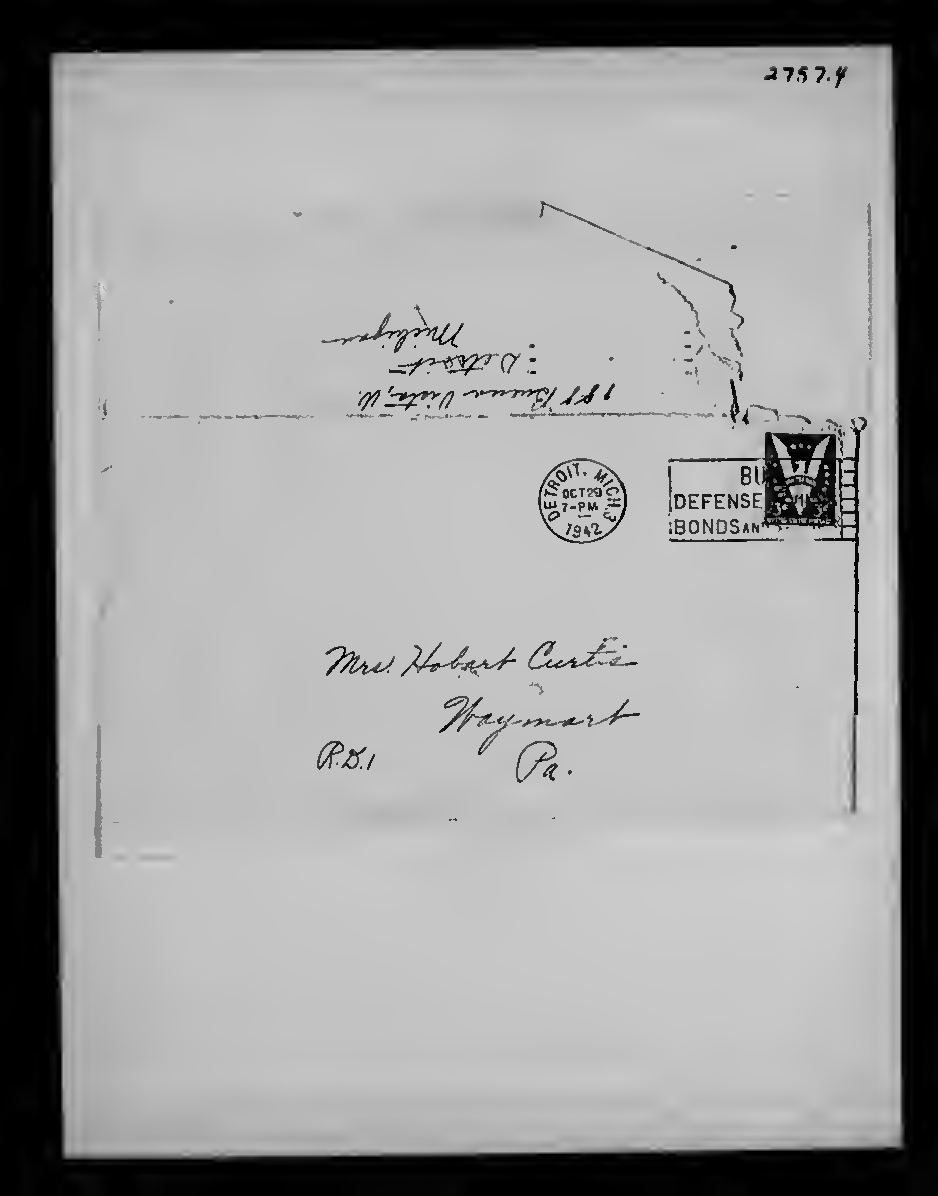 2757.4
188 Buena Vista, W.
Detroit
Michigan
DETROIT, MICH. 3
OCT 29
7-PM
1942
BU
DEFENSE
BONDS AN
Mrs. Hobart Curtis
Waymart
R.D.1 Pa.